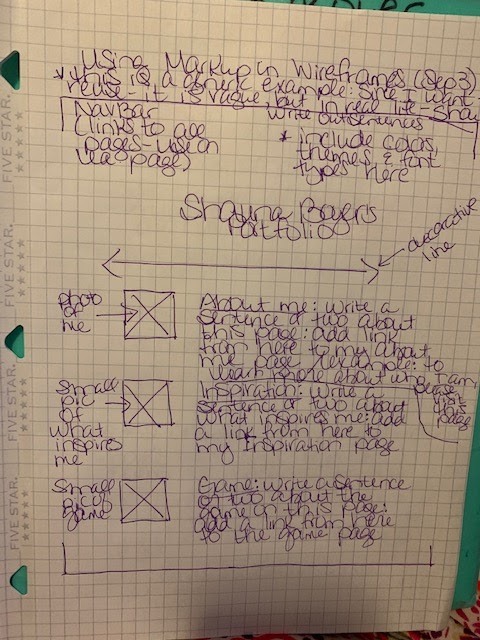 Using Markup in Wireframes (Sep 3)
* this is a generic example: since I want
reuse - it is vague, but in real life - Shou
write out sentences
NavBar
(links to all
pages - use on
all pages)
* include colors,
themes, & font
types here
Shauna Boyers
Portfolio
decorative
line
photo
of
me
About me: write a
sentence or two about
this page: add link
from here to my about
me page (example: to
learn more about who I am,
please
visit
this
page
Small
pic
of
what
inspires
me
Inspiration: write a
sentence or two about
what inspires me: add
a link from here to
my Inspiration page
Small
pic of
game
Game: write a sentence
or two about the
game on this page:
add a link from here
to the game page
FIVE STAR.
FIVE STAR.
FIVE STAR.
FIVE STAR.